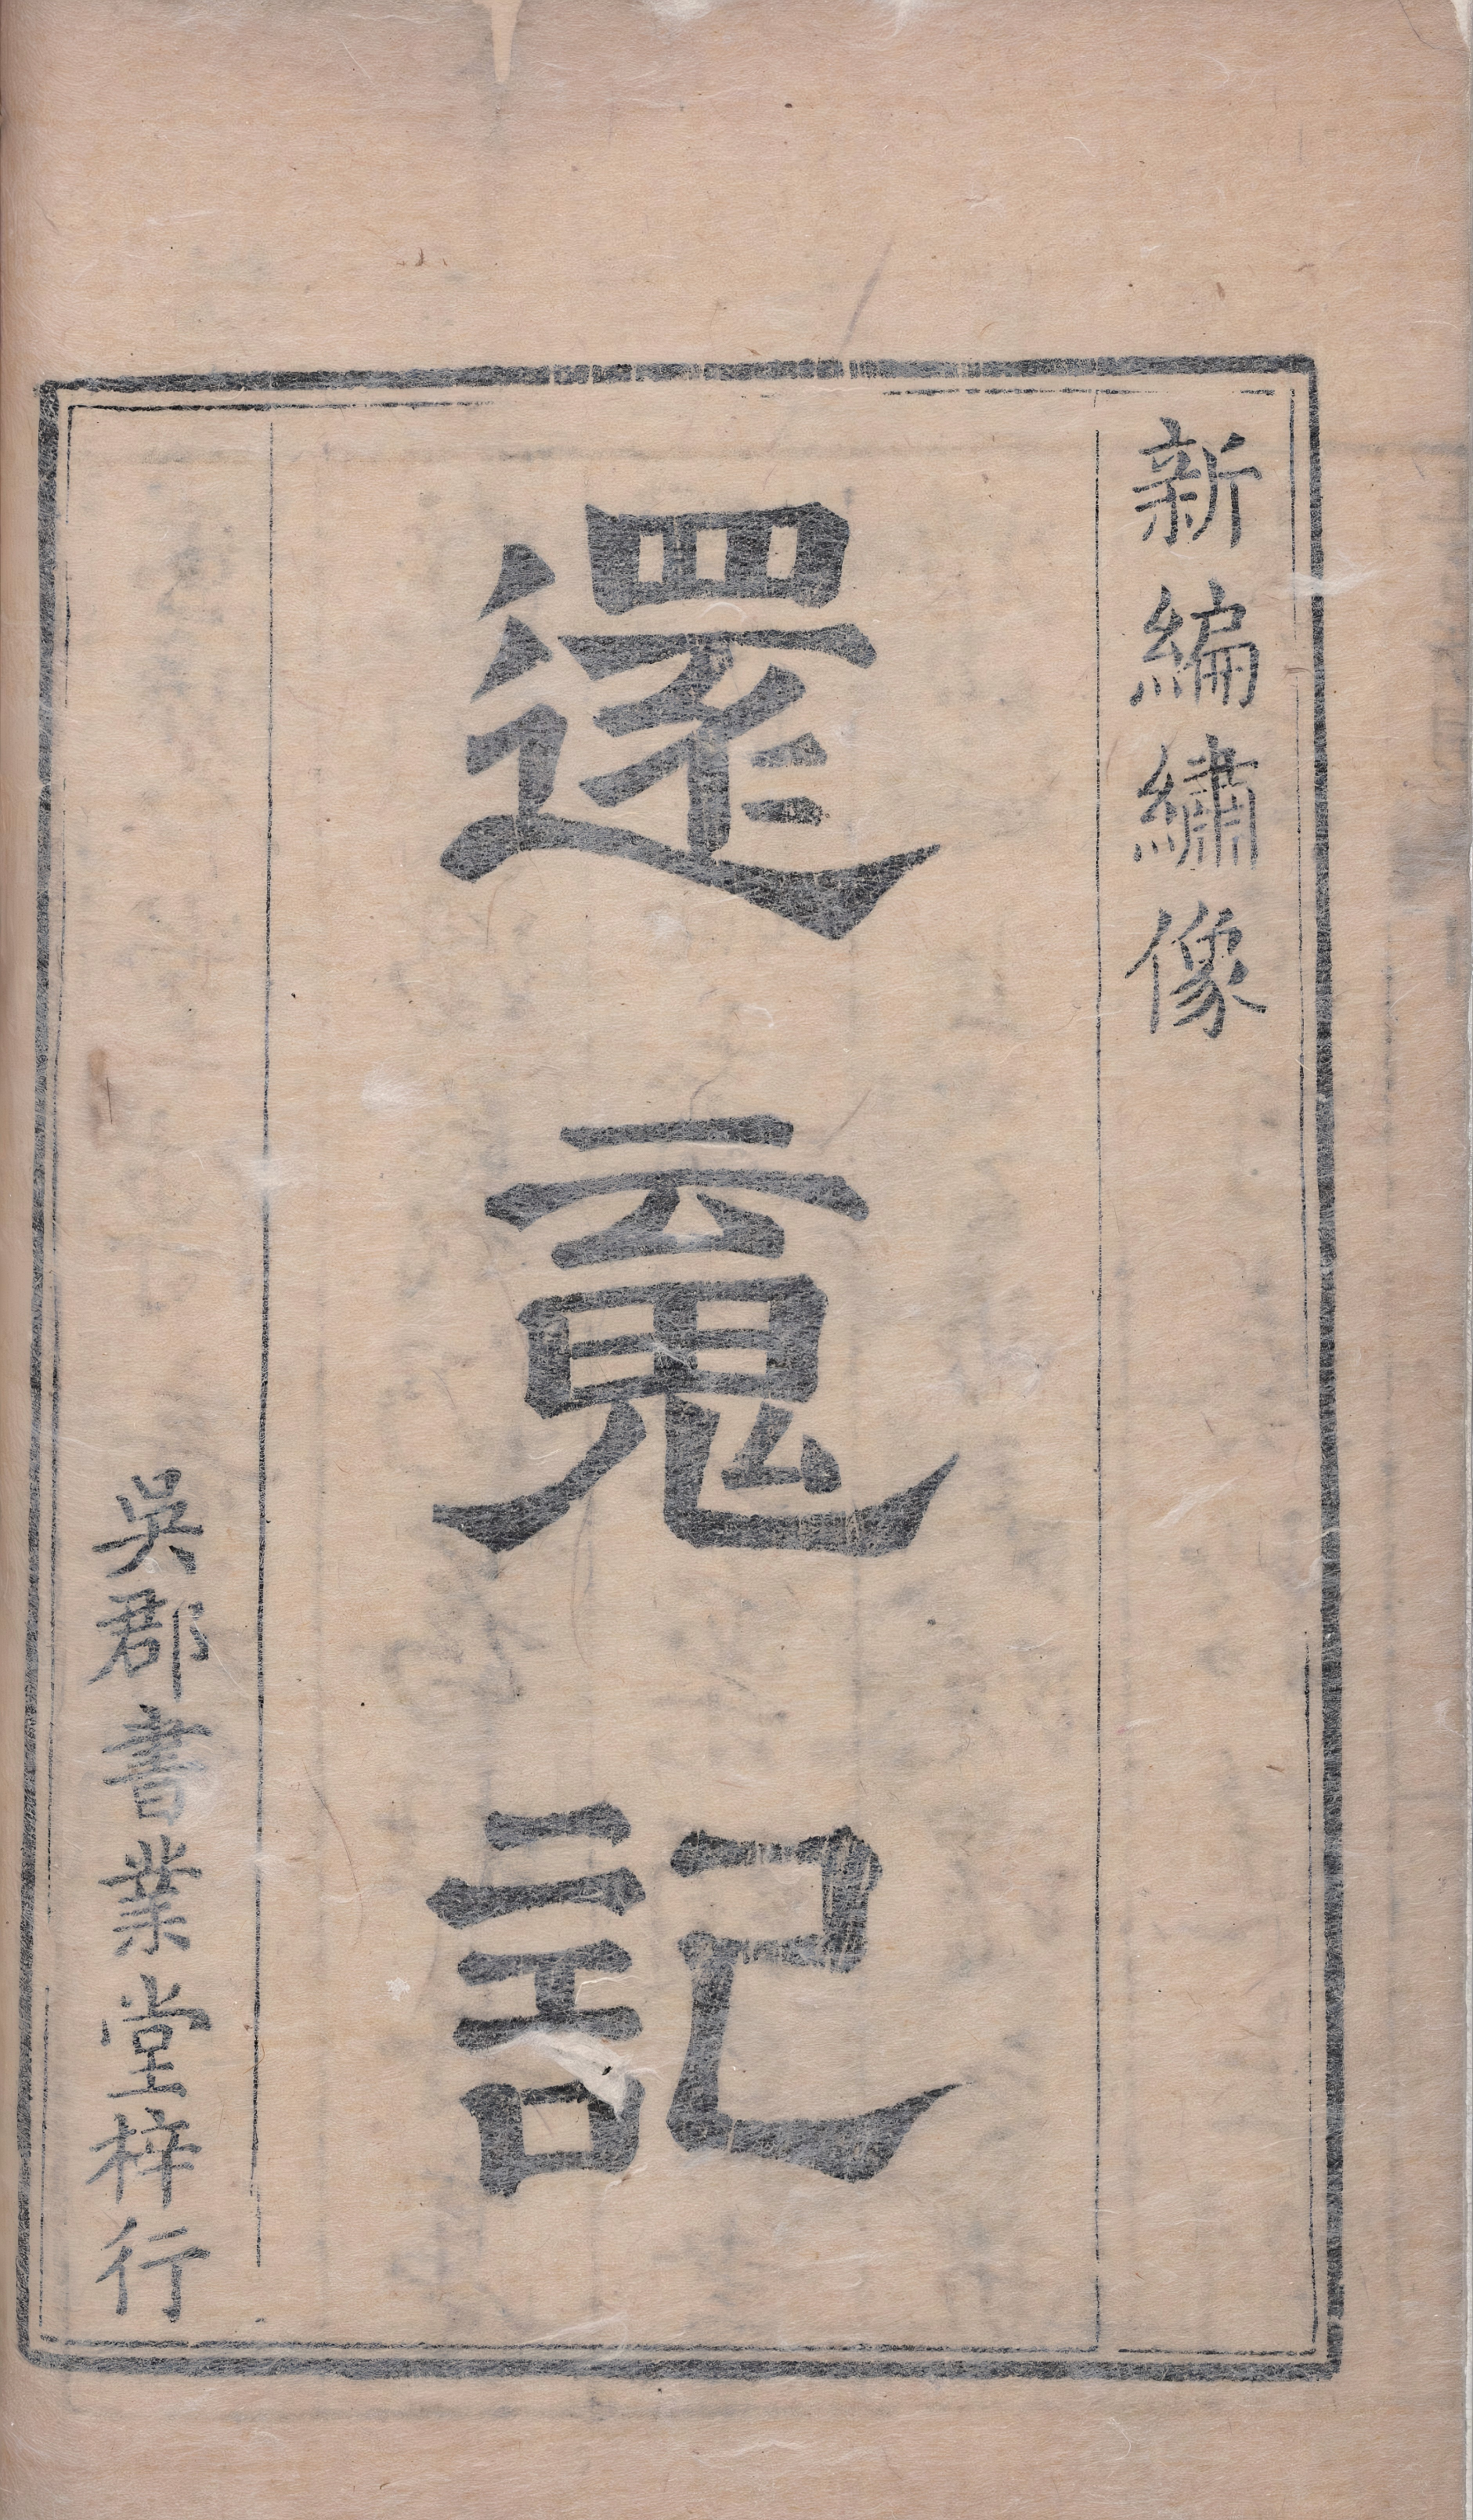 新編繡像
還䰟記
吳郡書業堂梓行